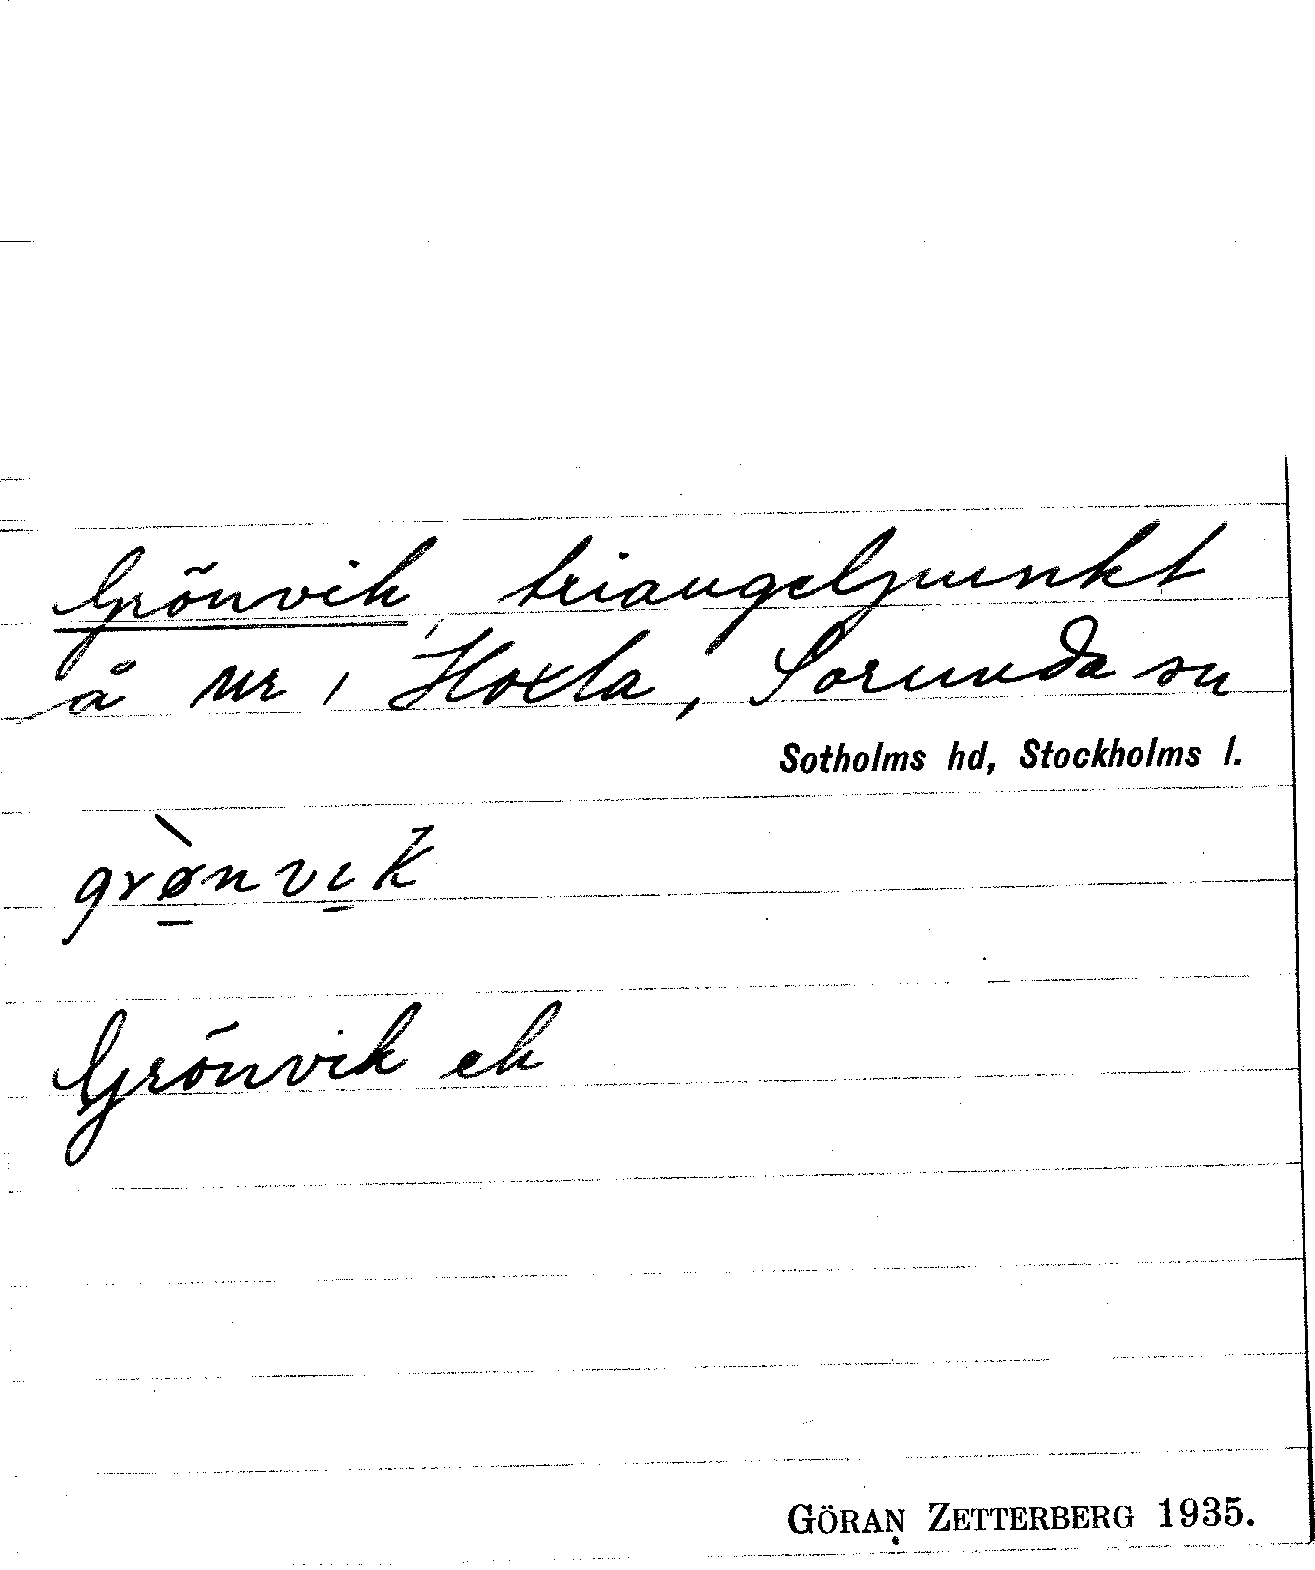 Grönvik, triangelpunkt
å nr 1 Hoxla, Sorunda sn
Sotholms hd, Stockholms l.
grø̠̀nvi̠k
Grönvik ek
GÖRAN ZETTERBERG 1935.